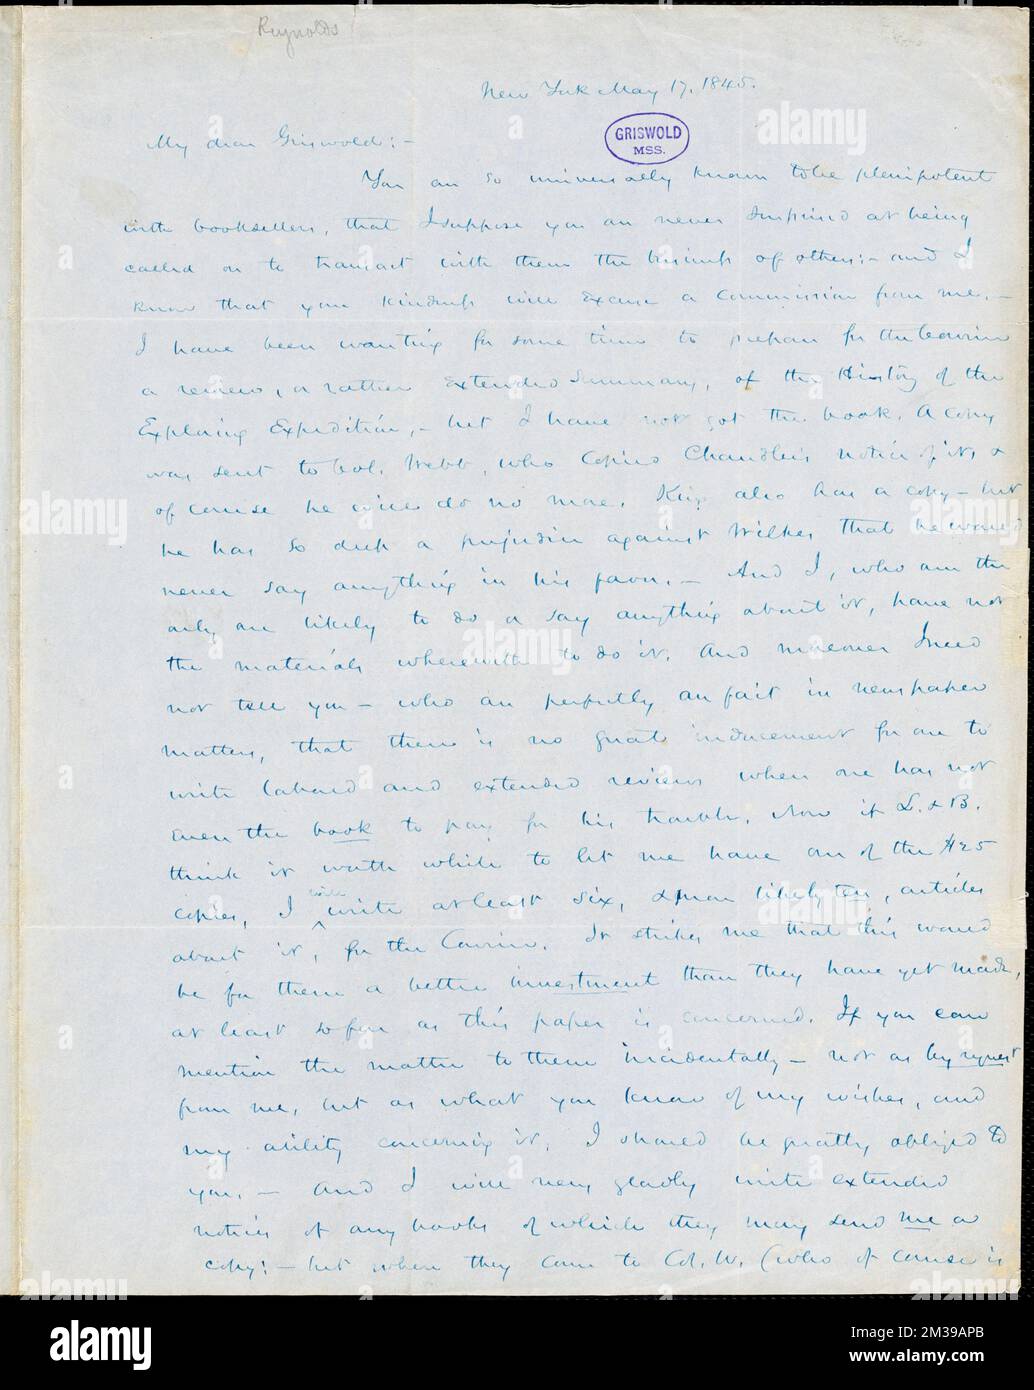 Reynolds
New York May 17, 1845.
GRISWOLD
MSS.
My dear Griswold:—
You are so universally known to be plenipotent
with booksellers, that I suppose you are never surprised at being
called on to transact with them the business of others:— and I
know that your kindness will excuse a commission from me.—
I have been wanting for some time to prepare for the Courier
a review, or rather extended summary, of the History of the
Exploring Expedition,— but I have not got the book. A copy
was sent to Col. Webb, who copies Chandler's notice of it, &
of course he will do no more. King also has a copy— but
he has so deep a prejudice against Wilkes that he would
never say anything in his favor.— And I, who am the
only one likely to do or say anything about it, have not
the materials wherewith to do it. And moreover I need
not tell you— who are perfectly au fait in newspaper
matters, that there is no great inducement for one to
write labored and extended reviews when one has not
even the book to pay for his trouble. Now if L. & B.
think it worth while to let me have one of the $25
copies, I will write at least six, & more likely ten, articles
about it, for the Courier. It strikes me that this would
be for them a better investment than they have yet made,
at least so far as this paper is concerned. If you can
mention the matter to them incidentally— not as by request
from me, but as what you know of my wishes, and
my ability concerning it, I should be greatly obliged to
you.— And I will very gladly write extended
notices of any books of which they may send me a
copy:— but when they come to Col. W. (who of course is
alamy
a
Image ID: 2M39APB
www.alamy.com